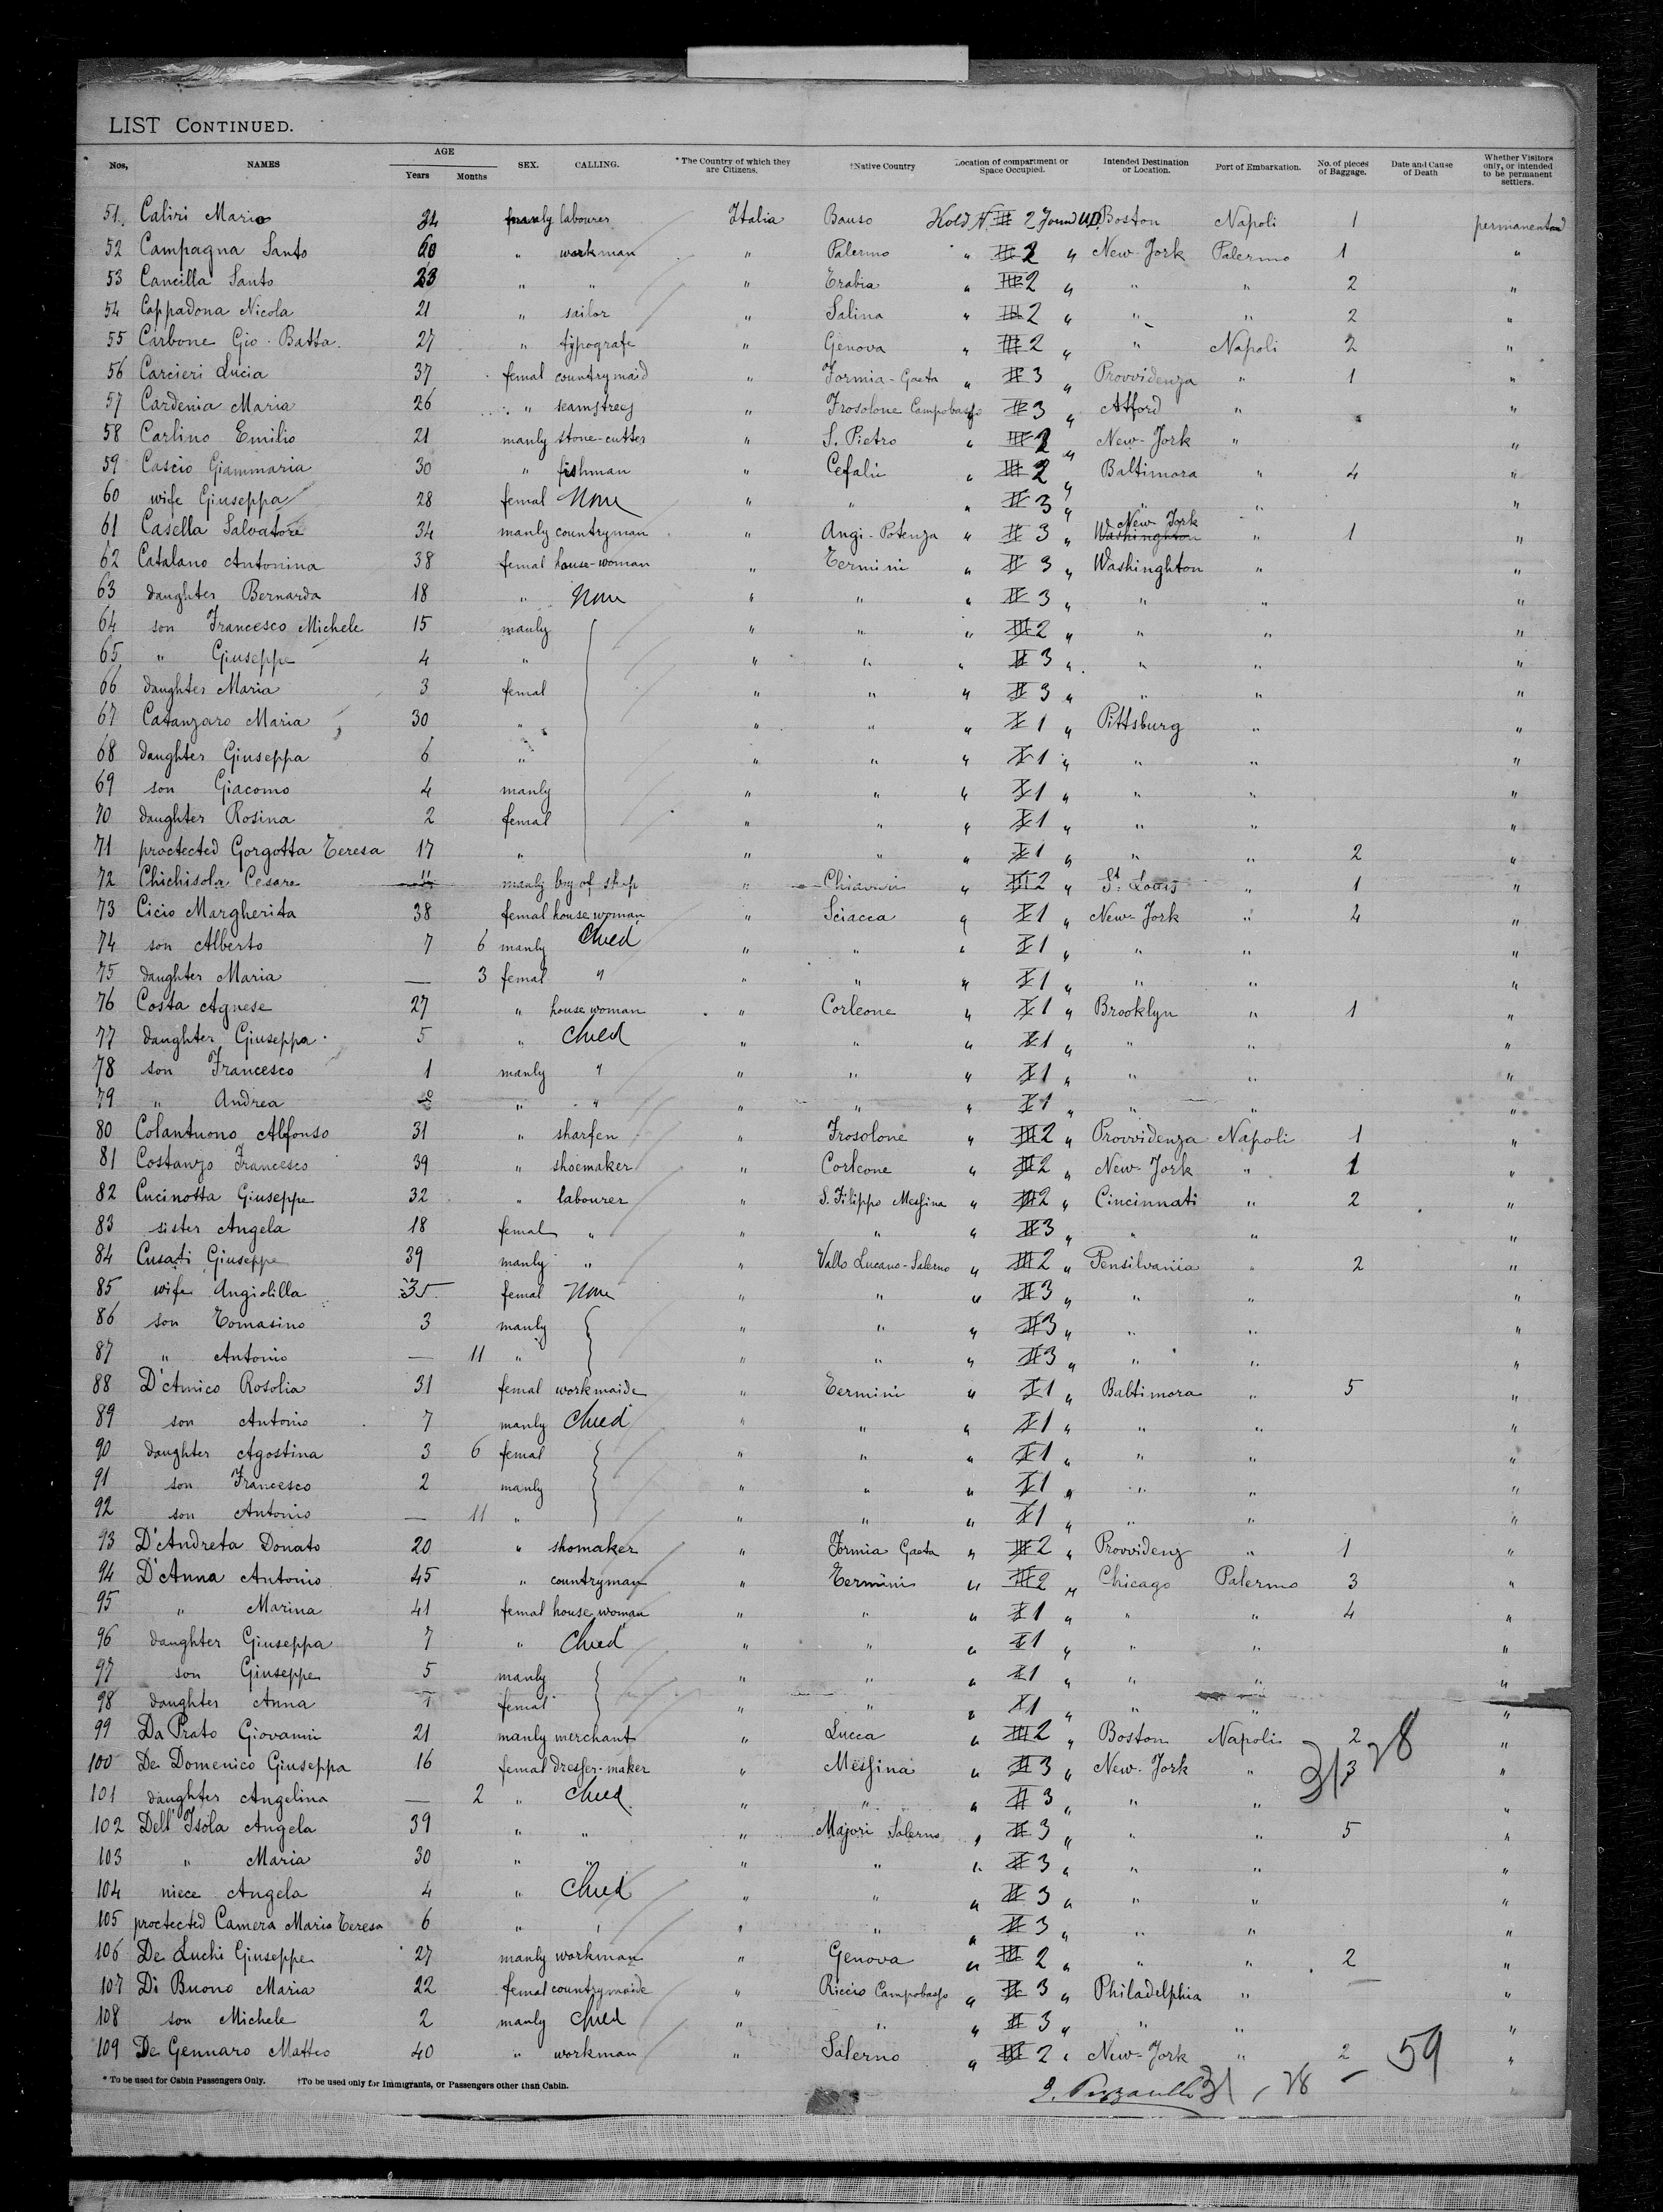 LIST CONTINUED.
* Nos, NAMES AGE Years Months SEX. CALLING. * The Country of which they are Citizens. †Native Country Location of compartment or Space Occupied. Intended Destination or Location. Port of Embarkation. No. of pieces of Baggage. Date and Cause of Death Whether Visitors only, or intended to be permanent settlers.
51. Caliri Mario 24 manly labourer Italia Bauso Hold N. III 2 Boston Napoli 1
52 Campagna Santo 60 " workman " Palermo " III 2 " New-York Palermo 1 "
53 Cancilla Santo 23 " " " Erabia " III 2 " " " 2 "
54 Cappadona Nicola 21 " sailor " Salina " III 2 " " " 2 "
55 Carbone Gio. Batta. 27 " typografe " Genova " III 2 " " Napoli 2 "
56 Carcieri Lucia 37 femal countrymaid " Formia-Gaeta " II 3 " Provvidenza " 1 "
57 Cardenia Maria 26 " seamstress " Frosolone Campobasso " II 3 " Atford " "
58 Carlino Emilio 21 manly stone-cutter " S. Pietro " III 2 " New-York " "
59 Cascio Giammaria 30 " fishman " Cefalù " III 2 " Baltimora " 4 "
60 wife Giuseppa 28 femal None " " " II 3 " " " "
61 Casella Salvatore 34 manly countryman " Angi-Potenza " II 3 " Washinghton New York " 1 "
62 Catalano Antonina 38 femal house-woman " Termini " II 3 " Washinghton " "
63 daughter Bernarda 18 " None " " " II 3 " " " "
64 son Francesco Michele 15 manly " " " III 2 " " " "
65 " Giuseppe 4 " " " " II 3 " " " "
66 daughter Maria 3 femal " " " II 3 " " " "
67 Catanzaro Maria 30 " " " " I 1 " Pittsburg " "
68 daughter Giuseppa 6 " " " " I 1 " " " "
69 son Giacomo 4 manly " " " I 1 " " " "
70 daughter Rosina 2 femal " " " I 1 " " " "
71 proctected Gorgotta Teresa 17 " " " " I 1 " " " 2 "
72 Chichisola Cesare 11 manly boy of ship " Chiavari " III 2 " St. Louis " 1 "
73 Cicio Margherita 38 femal house woman " Sciacca " I 1 " New-York " 4 "
74 son Alberto 7 6 manly Child " " " I 1 " " " "
75 daughter Maria — 3 femal " " " " I 1 " " " "
76 Costa Agnese 27 " house woman " Corleone " I 1 " Brooklyn " 1 "
77 daughter Giuseppa 5 " Child " " " I 1 " " " "
78 son Francesco 1 manly " " " " I 1 " " " "
79 " Andrea " " " " " I 1 " " " "
80 Colantuono Alfonso 31 " sharfen " Frosolone " III 2 " Provvidenza Napoli 1 "
81 Costanzo Francesco 39 " shoemaker " Corleone " III 2 " New-York " 1 "
82 Cucinotta Giuseppe 32 " labourer " S. Filippo Messina " III 2 " Cincinnati " 2 "
83 sister Angela 18 femal " " " " II 3 " " " "
84 Cusati Giuseppe 39 manly " " Vallo Lucano-Salerno " III 2 " Pensilvania " 2 "
85 wife Angiolilla 35 femal None " " " II 3 " " " "
86 son Tomasino 3 manly " " " II 3 " " " "
87 " Antonio — 11 " " " " II 3 " " " "
88 D'Amico Rosolia 31 femal workmaide " Termini " I 1 " Baltimora " 5 "
89 son Antonio 7 manly Child " " " I 1 " " " "
90 daughter Agostina 3 6 femal " " " I 1 " " " "
91 son Francesco 2 manly " " " I 1 " " " "
92 son Antonio — 11 " " " " I 1 " " " "
93 D'Andreta Donato 20 " shomaker " Formia Gaeta " III 2 " Provvidenz " 1 "
94 D'Anna Antonio 45 " countryman " Termini " III 2 " Chicago Palermo 3 "
95 " Marina 41 femal house woman " " " I 1 " " " 4 "
96 daughter Giuseppa 7 " Child " " " I 1 " " " "
97 son Giuseppe 5 manly " " " I 1 " " " "
98 daughter Anna 1 femal " " " I 1 " " " "
99 Da Prato Giovanni 21 manly merchant " Lucca " III 2 " Boston Napoli 2 "
100 De Domenico Giuseppa 16 femal dresser-maker " Messina " II 3 " New-York " 3 "
31 28
101 daughter Angelina — 2 " Child " " " II 3 " " " "
102 Dell'Isola Angela 39 " " " Majori Salerno " II 3 " " " 5 "
103 " Maria 30 " " " " " II 3 " " " "
104 niece Angela 4 " Child " " " II 3 " " " "
105 proctected Camera Maria Teresa 6 " " " " " II 3 " " " "
106 De Luchi Giuseppe 27 manly workman " Genova " III 2 " " " 2 "
107 Di Buono Maria 22 femal countrymaide " Riccio Campobasso " II 3 " Philadelphia " "
108 son Michele 2 manly Child " " " II 3 " " " "
109 De Gennaro Matteo 40 " workman " Salerno " III 2 " New-York " 2 "
59
* To be used for Cabin Passengers Only. †To be used only for Immigrants, or Passengers other than Cabin.
31 28